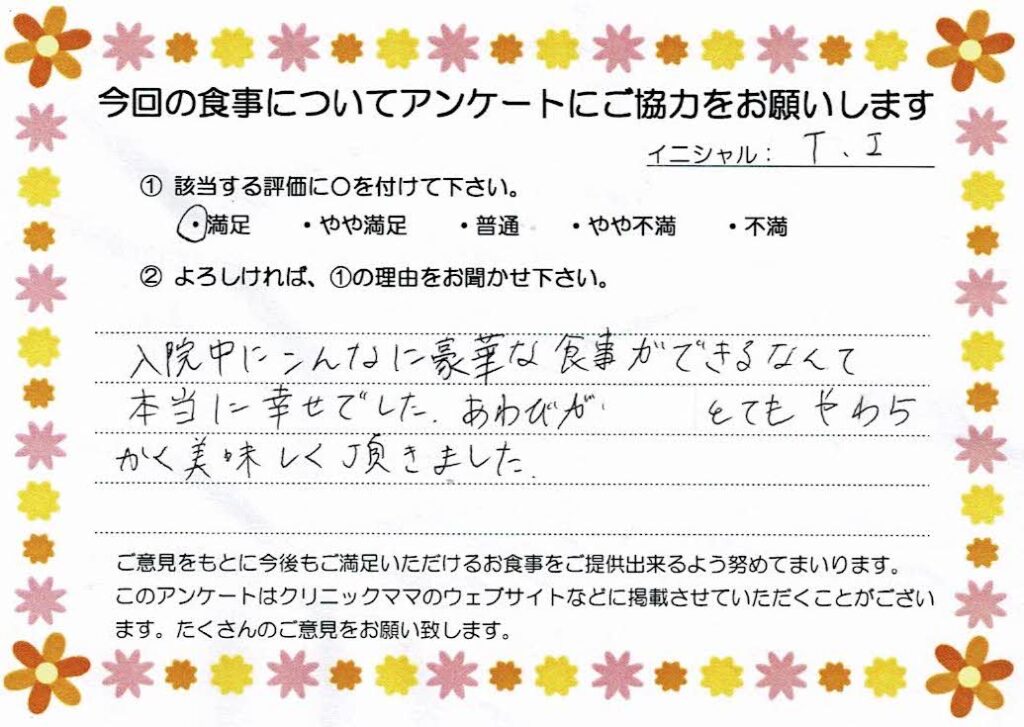 今回の食事についてアンケートにご協力をお願いします
イニシャル： T、I
① 該当する評価に○を付けて下さい。
・満足 ・やや満足 ・普通 ・やや不満 ・不満
② よろしければ、①の理由をお聞かせ下さい。
入院中にこんなに豪華な食事ができるなんて
本当に幸せでした。あわびが とてもやわら
かく美味しく頂きました。
ご意見をもとに今後もご満足いただけるお食事をご提供出来るよう努めてまいります。
このアンケートはクリニックママのウェブサイトなどに掲載させていただくことがござい
ます。たくさんのご意見をお願い致します。